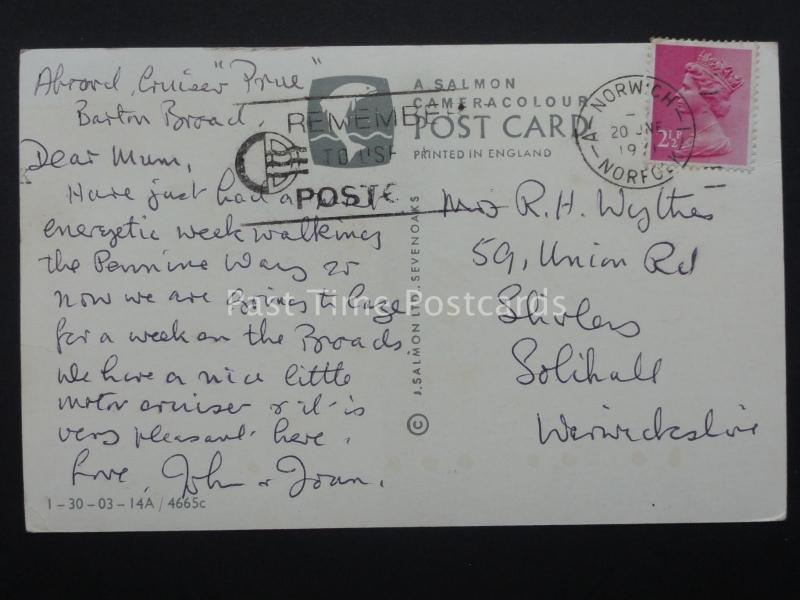 Aboard, Cruiser "Prue"
Barton Broad.
Dear Mum,
Have just had a
energetic week walking
the Pennine Way &
now we are going to laze
for a week on the Broads.
We have a nice little
motor cruiser & it is
very pleasant here.
Love, John & Joan.
1-30-03-14A/4665c
REMEMBER
TO USE
POSTC
A SALMON
CAMERACOLOUR
POST CARD
PRINTED IN ENGLAND
© J. SALMON LTD. SEVENOAKS
NORWICH
A
20 JNE
19
NORFOLK
2½P
Mrs R. H. Wythes
59, Union Rd
Shirley
Solihull
Warwickshire
Past Time Postcards